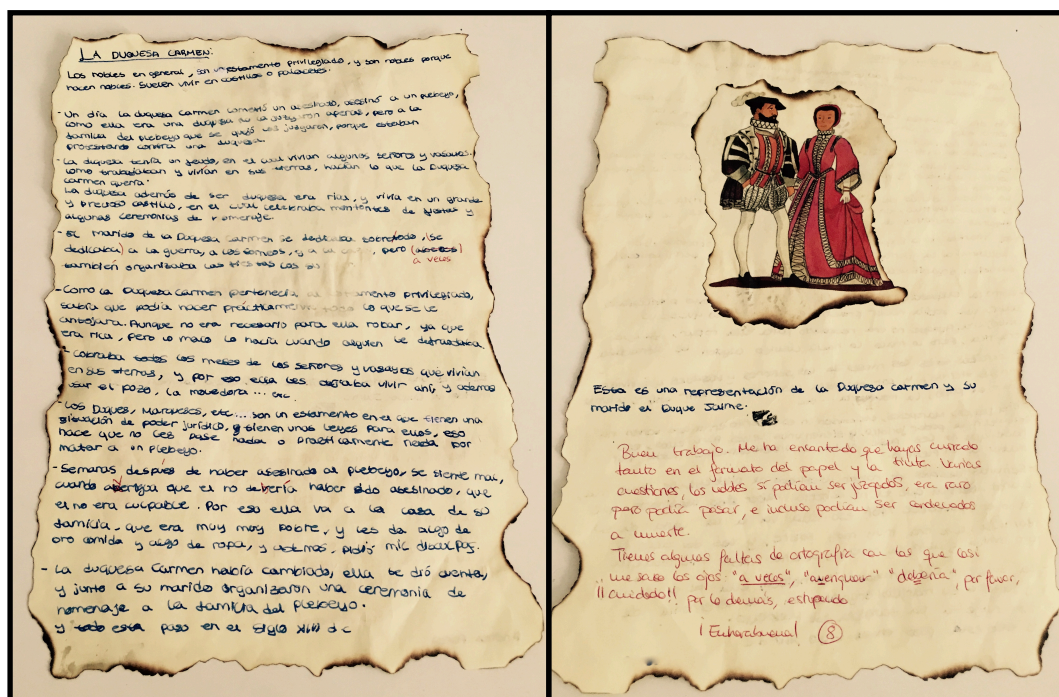 LA DUQUESA CARMEN:
Los nobles en general, son un estamento privilegiado, y son nobles porque
nacen nobles. Suelen vivir en castillos o palacetes.
- Un día la duquesa Carmen cometió un asesinato, asesinó a un plebeyo,
como ella era una duquesa no la juzgaron apenas, pero a la
familia del plebeyo que se quejó los juzgaron, porque estaban
protestando contra una duquesa.
- La duquesa tenía un feudo, en el cual vivían algunos señores y vasallos.
Como trabajaban y vivían en sus tierras, hacían lo que la Duquesa
Carmen quería.
La duquesa además de ser duquesa era rica, y vivía en un grande
y precioso castillo, en el cual celebraba montones de fiestas y
algunas ceremonias de homenaje.
- El marido de la Duquesa Carmen se dedicaba sobretodo, (se
dedicaba) a la guerra, a los torneos, y a la pero
a veces
también organizaba las fiestas
- Como la Duquesa Carmen pertenecía al estamento privilegiado,
sabía que podía hacer prácticamente todo lo que se le
antojara. Aunque no era necesario para ella robar, ya que
era rica, pero lo malo lo hacía cuando alguien le defraudaba.
- Cobraba todos los meses de los señores y vasayos que vivían
en sus tierras, y por eso ella les dejaba vivir ahí, y además
usar el pozo, la ... etc.
- Los Duques, Marqueses, etc... son un estamento en el que tienen una
situación de poder jurídico, y tienen unas leyes para ellos, eso
hace que no les pase nada o prácticamente nada por
matar a un plebeyo.
- Semanas después de haber asesinado al plebeyo, se siente mal,
cuando que el no debería haber sido asesinado, que
el no era culpable. Por eso ella va a la casa de su
familia, que era muy muy pobre, y les da algo de
oro comida y algo de ropa, y además, pidió mil disculpas.
- La duquesa Carmen había cambiado, ella se dió cuenta,
y junto a su marido organizaron una ceremonia de
homenaje a la familia del plebeyo.
y todo esto paso en el siglo XIII d.c
Esta es una representación de la Duquesa Carmen y su
marido el Duque Jaime.
Buen trabajo. Me ha encantado que hayas currado
tanto en el formato del papel y la tinta. Varias
cuestiones, los nobles sí podían ser juzgados, era raro
pero podía pasar, e incluso podían ser condenados
a muerte.
Tienes algunas faltas de ortografía con las que casi
me saco los ojos "a veces", "averiguar" "debería", por favor,
¡¡cuidado!! por lo demás, estupendo
¡Enhorabuena! 8